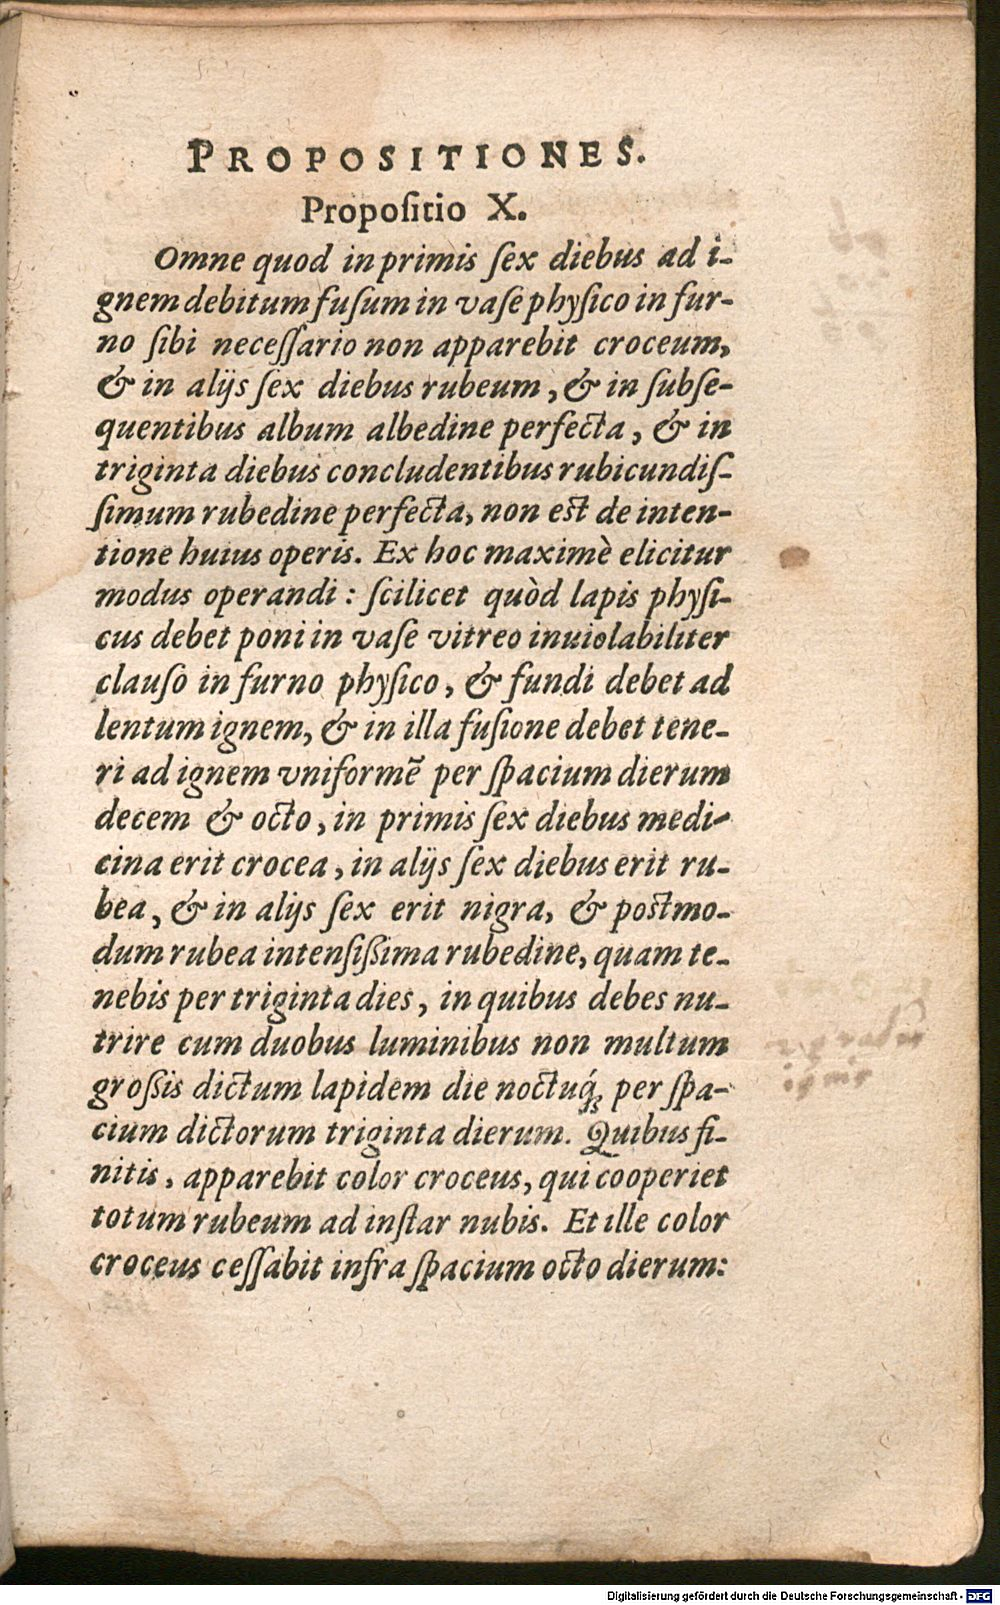 PROPOSITIONES.
Propoſitio X.
Omne quod in primis ſex diebus ad i-
gnem debitum fuſum in vaſe phyſico in fur-
no ſibi neceſſario non apparebit croceum,
& in alijs ſex diebus rubeum, & in ſubſe-
quentibus album albedine perfecta, & in
triginta diebus concludentibus rubicundiſ-
ſimum rubedine perfecta, non est de inten-
tione huius operis. Ex hoc maximè elicitur
modus operandi: ſcilicet quòd lapis phyſi-
cus debet poni in vaſe vitreo inuiolabiliter
clauſo in furno phyſico, & fundi debet ad
lentum ignem, & in illa fuſione debet tene-
ri ad ignem vniformē per ſpacium dierum
decem & octo, in primis ſex diebus medi-
cina erit crocea, in alijs ſex diebus erit ru-
bea, & in alijs ſex erit nigra, & postmo-
dum rubea intenſißima rubedine, quam te-
nebis per triginta dies, in quibus debes nu-
trire cum duobus luminibus non multum
großis dictum lapidem die noctuq́ꝫ per ſpa-
cium dictorum triginta dierum. Quibus fi-
nitis, apparebit color croceus, qui cooperiet
totum rubeum ad inſtar nubis. Et ille color
croceus ceſſabit infra ſpacium octo dierum:
Digitalisierung gefördert durch die Deutsche Forschungsgemeinschaft - DFG